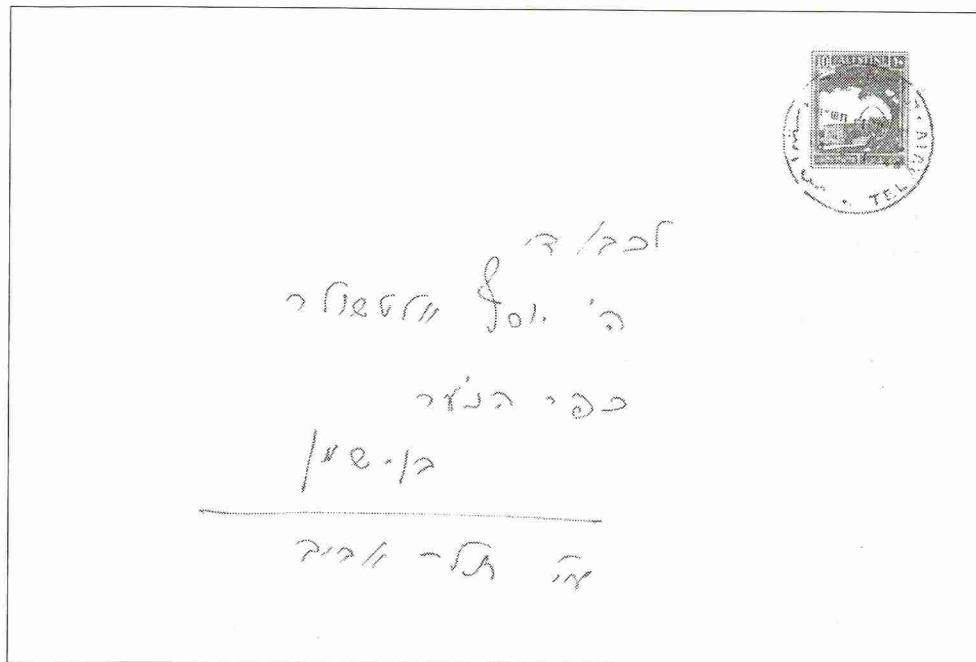 PALESTINE
TEL AVIV
לכב' ד'
ה' יוסף וולטשולר
כפר הנוער
בן-שמן
ע"י תל-אביב